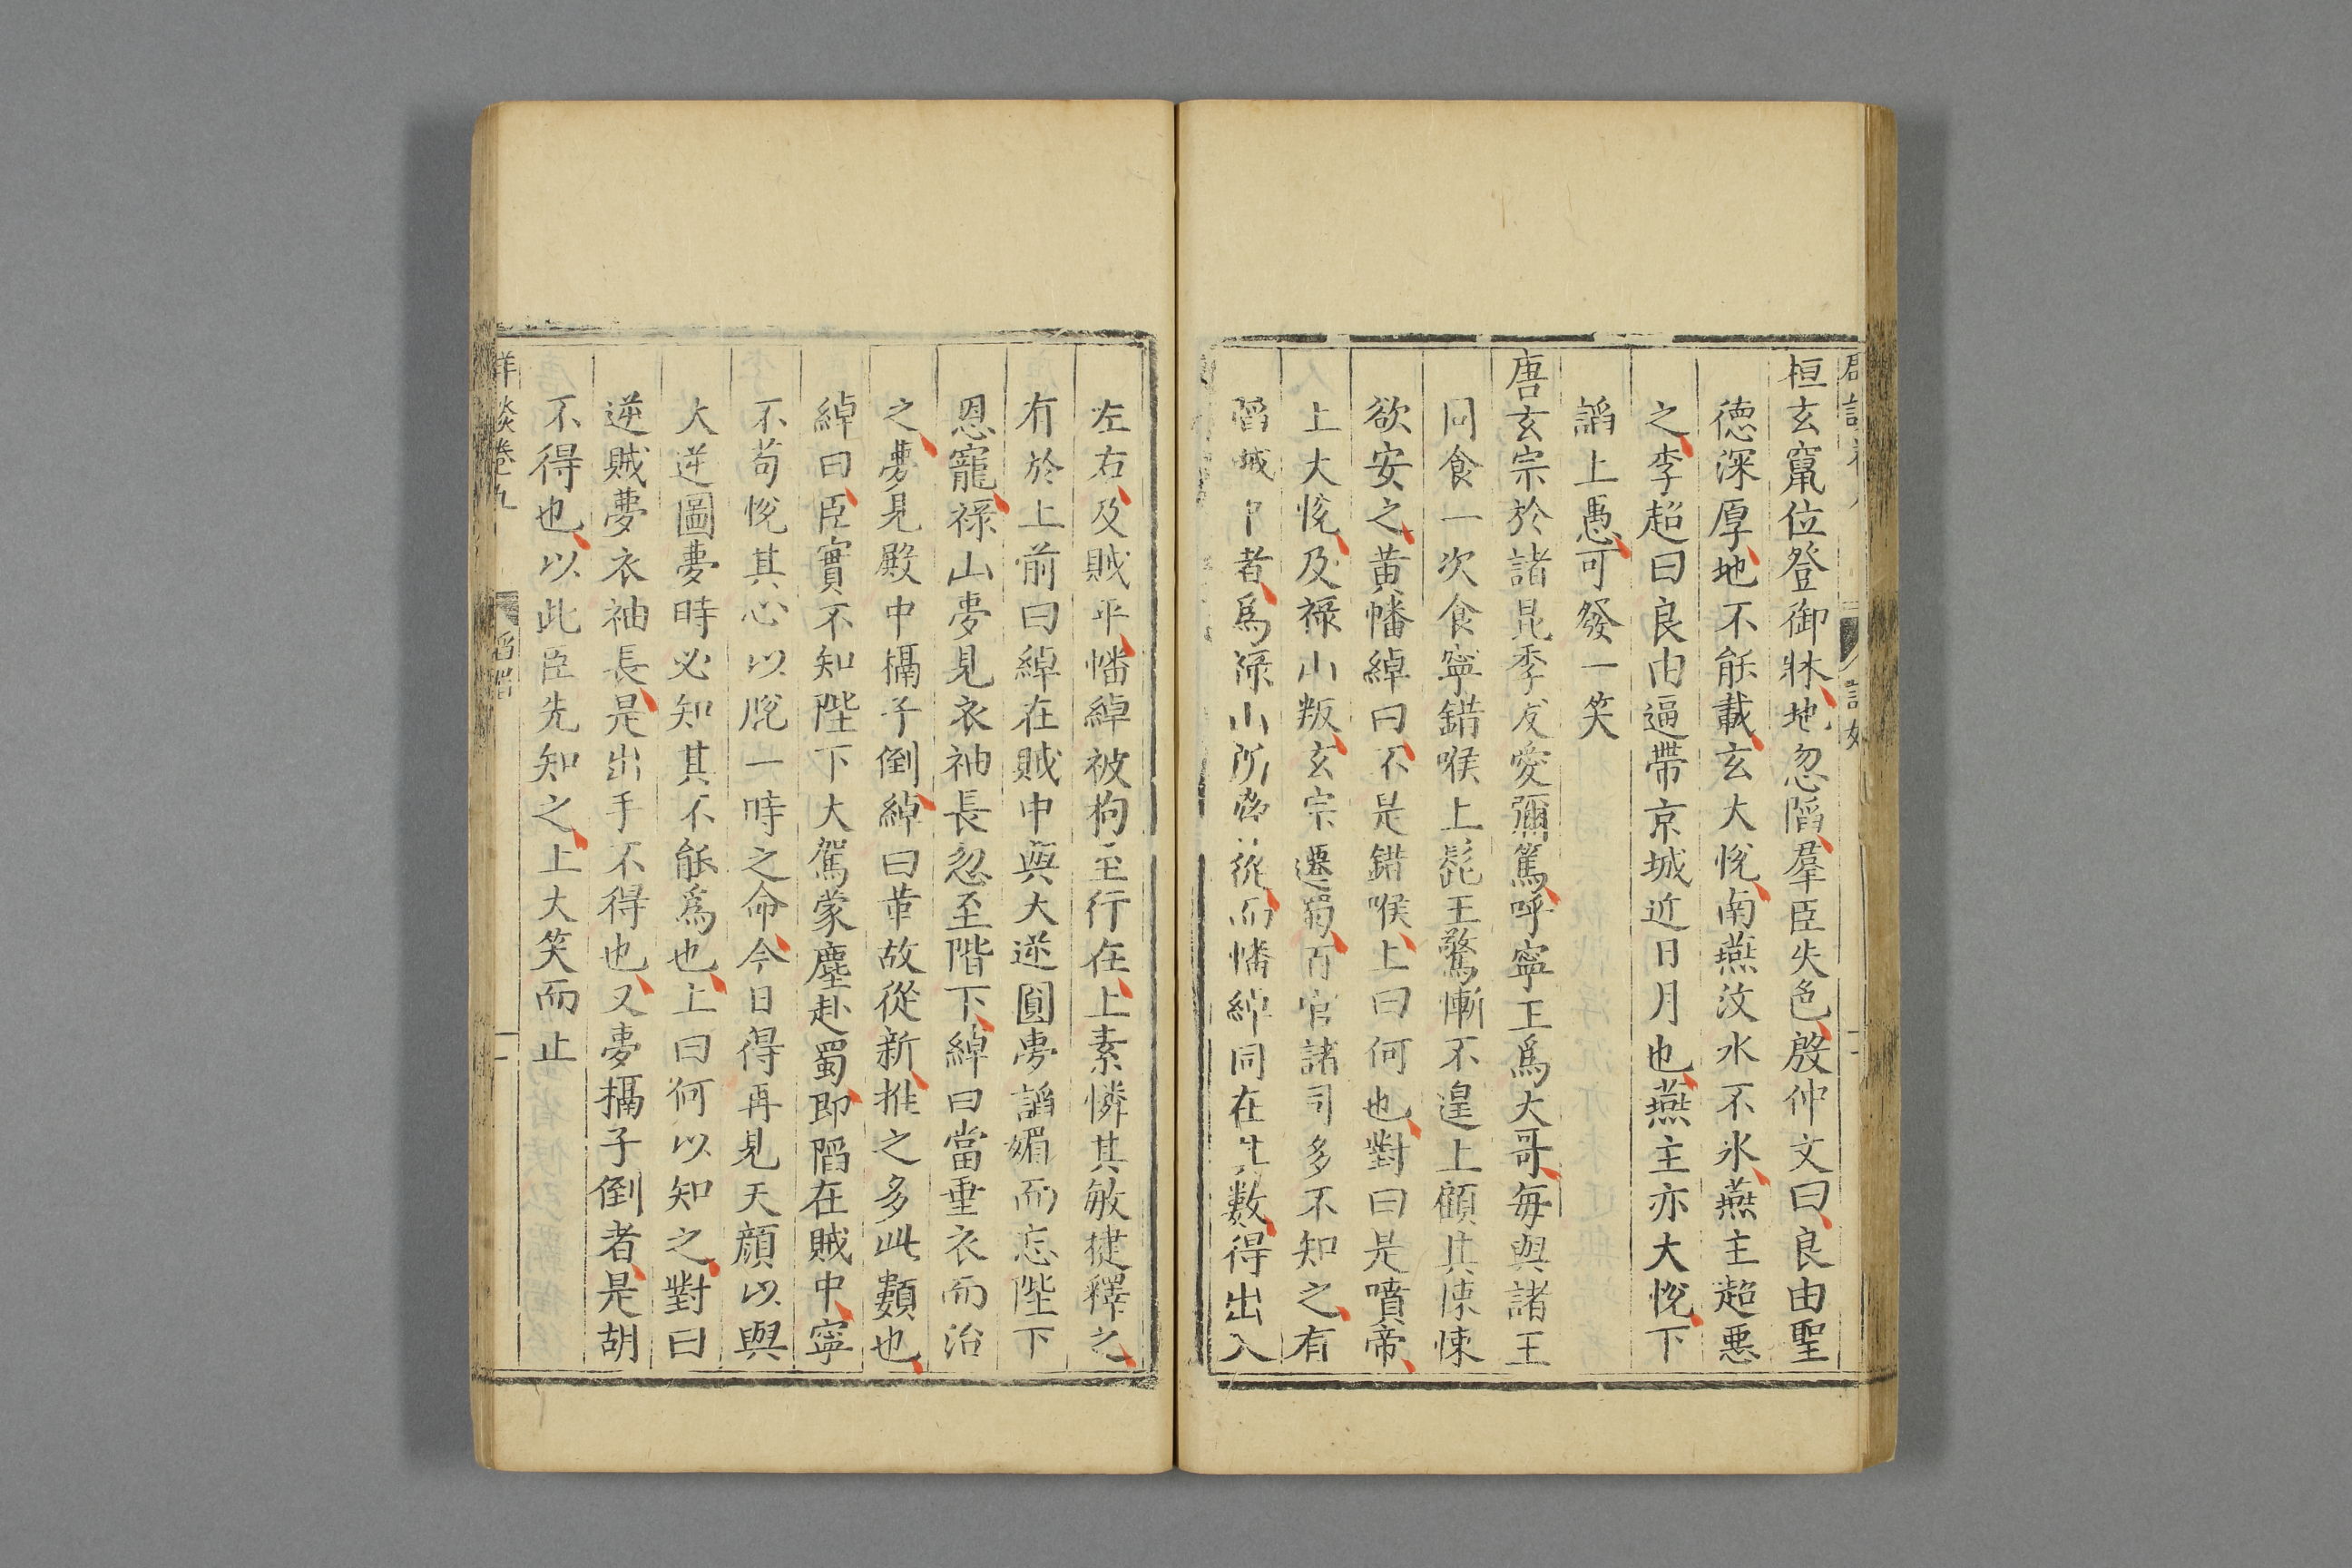 桓玄竄位登御牀地忽陷羣臣失色殷仲文曰良由聖
德深厚地不能載玄大悅南燕汶水不氷燕主超惡
之李超曰良由逼帶京城近日月也燕主亦大悅下
謟上愚可發一笑
唐玄宗於諸昆季友愛彌篤呼寧王爲大哥每與諸王
同食一次食寧錯喉上髭王驚慚不遑上顧其悚悚
欲安之黃幡綽曰不是錯喉上曰何也對曰是噴帝
上大悅及祿山叛玄宗遷蜀百官諸司多不知之有
陷城中者爲祿山所脅從而幡綽同在其數得出入
左右及賊平幡綽被拘至行在上素憐其敏捷釋之
有於上前曰綽在賊中與大逆圓夢謟媚而忘陛下
恩寵祿山夢見衣袖長忽至階下綽曰當垂衣而治
之夢見殿中槅子倒綽曰革故從新推之多此類也
綽曰臣實不知陛下大駕蒙塵赴蜀卽陷在賊中寧
不苟悅其心以脫一時之命今日得再見天顔以與
大逆圖夢時必知其不能爲也上曰何以知之對曰
逆賊夢衣袖長是出手不得也又夢槅子倒者是胡
不得也以此臣先知之上大笑而止
卷九